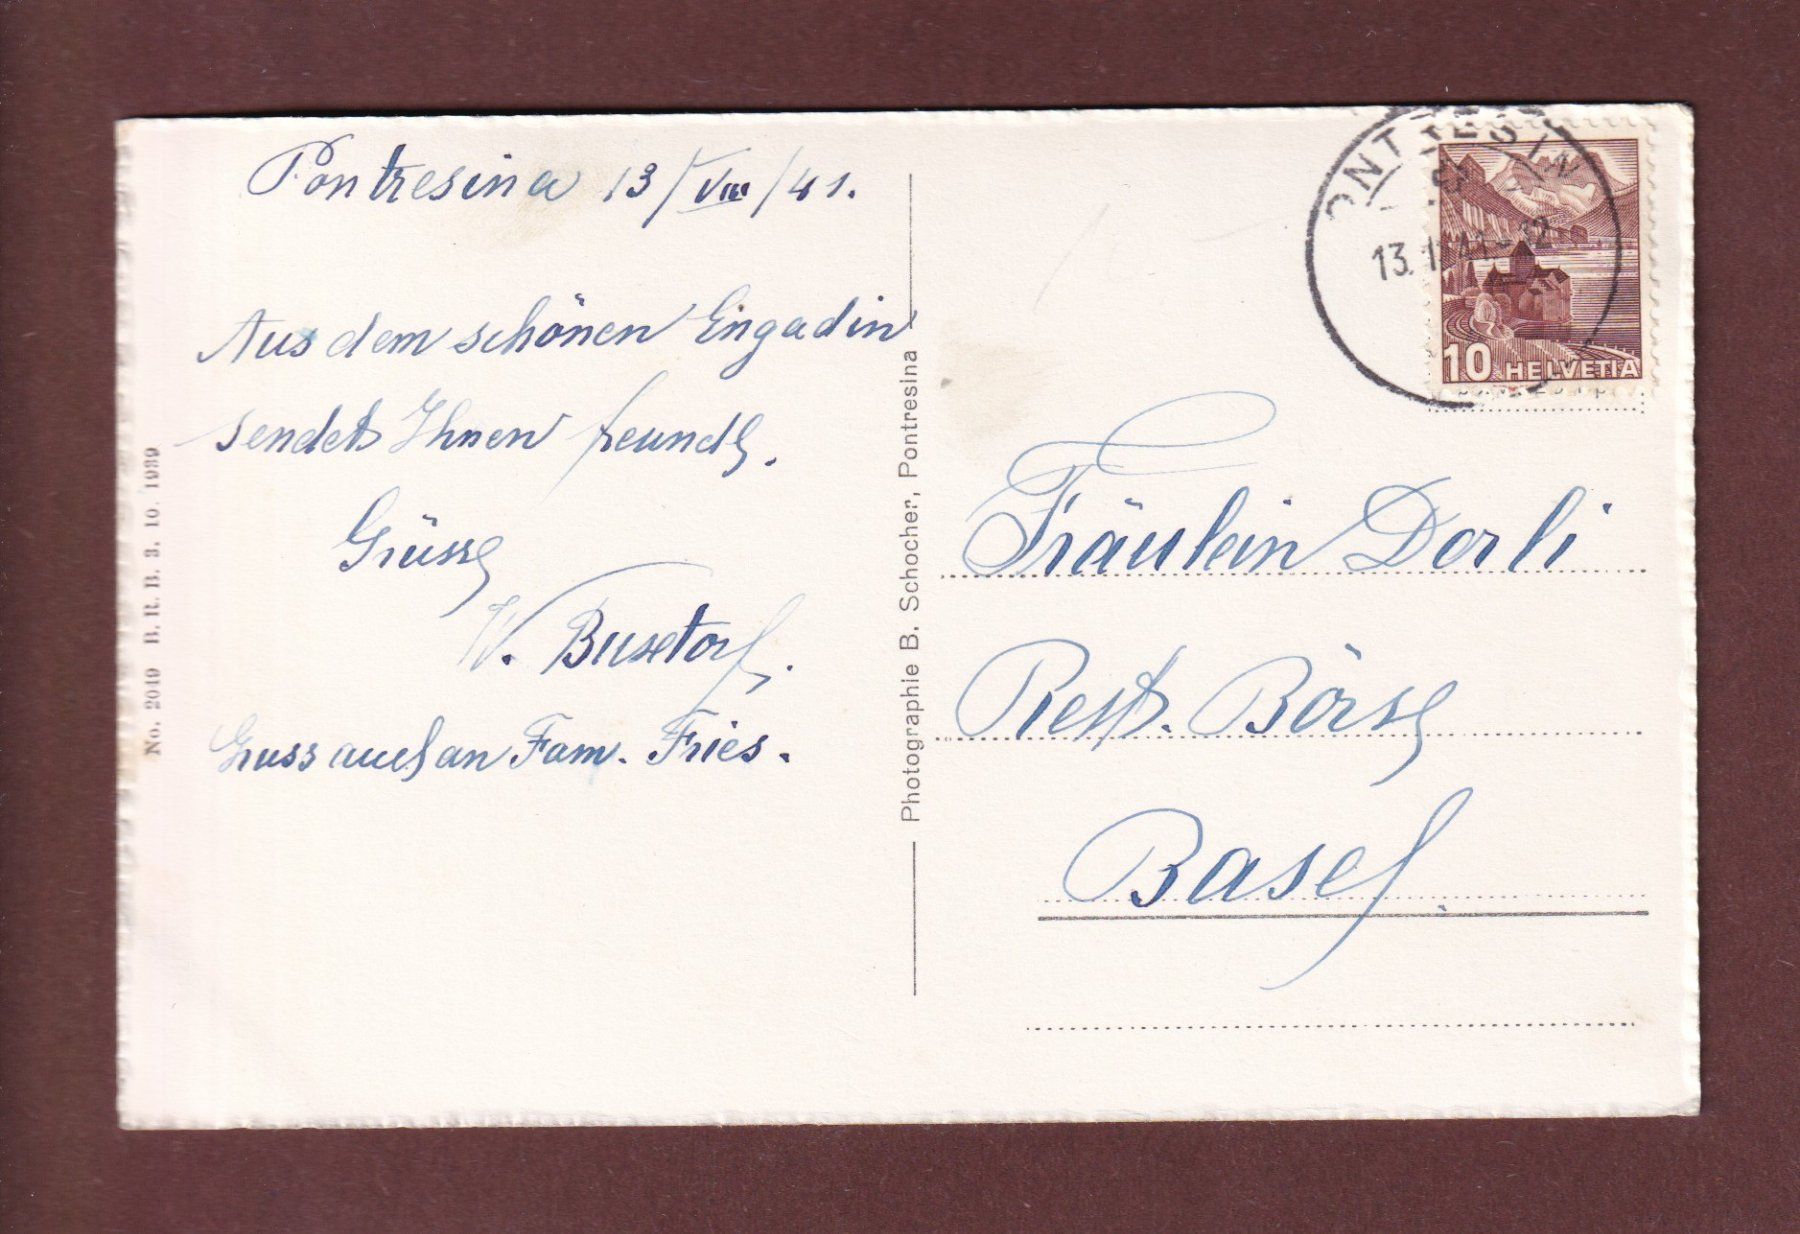 Pontresina 13/VIII/41.
Aus dem schönen Engadin
sendet Ihnen freundl.
Grüsse
W.
Gruss auch an Fam. Fries.
No. 2049 B. R. B. 3. 10. 1939
Photographie B. Schocher, Pontresina
PONTRESINA
13.
41-12
10 HELVETIA
Fräulein Dorli
Rest. Börse
Basel